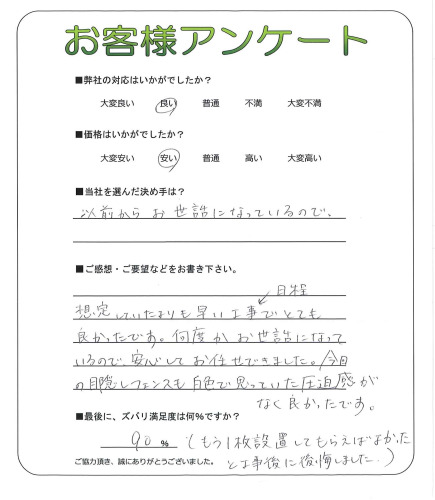 お客様アンケート
■弊社の対応はいかがでしたか?
大変良い 良い 普通 不満 大変不満
■価格はいかがでしたか?
大変安い 安い 普通 高い 大変高い
■当社を選んだ決め手は?
以前からお世話になっているので、
■ご感想・ご要望などをお書き下さい。
日程
想定していたよりも早い工事でとても
良かったです。何度かお世話になって
いるので、安心してお任せできました。今回
の目隠しフェンスも白色で思っていた圧迫感が
なく良かったです。
■最後に、ズバリ満足度は何%ですか?
90 % (もう1枚設置してもらえばよかった
と工事後に後悔しました。)
ご協力頂き、誠にありがとうございました。